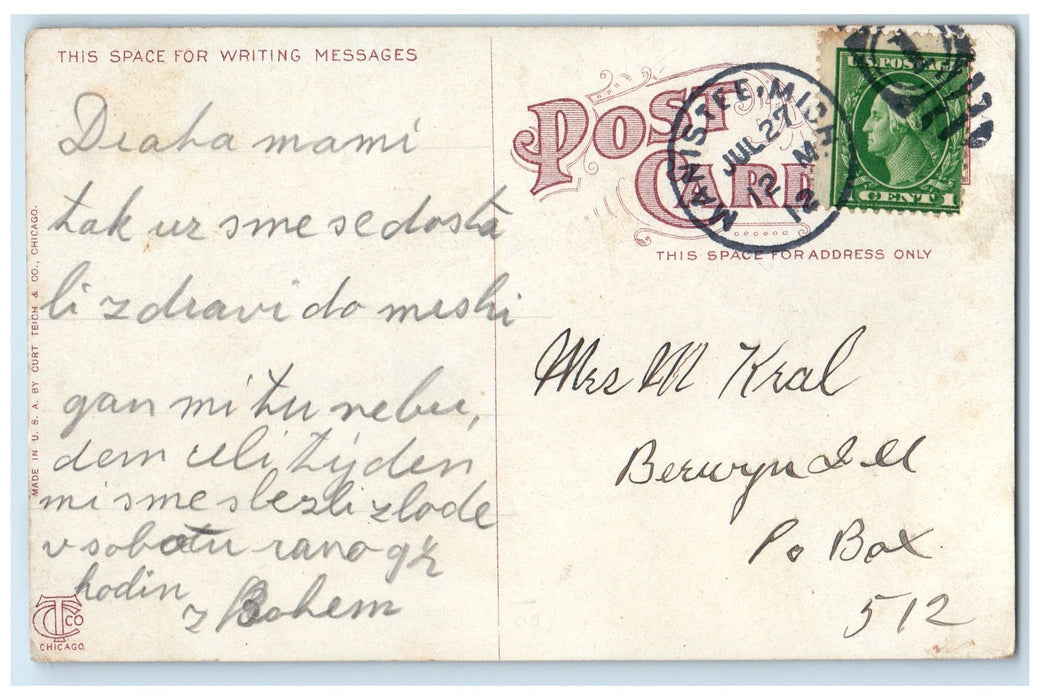 THIS SPACE FOR WRITING MESSAGES
Draha mami
tak uz sme se dosta
li zdravi do mishi
gan mi tu nebu,
dem celi tyden
mi sme slezli z lode
v sobotu rano
hodin
z Bohem
MADE IN U. S. A. BY CURT TEICH & CO., CHICAGO.
CT CO
CHICAGO.
POST CARD
MANISTEE, MICH.
JUL 27
12 M
12
U.S. POSTAGE
1 CENT 1
THIS SPACE FOR ADDRESS ONLY
Mrs M Kral
Berwyn Ill
Po Box
512